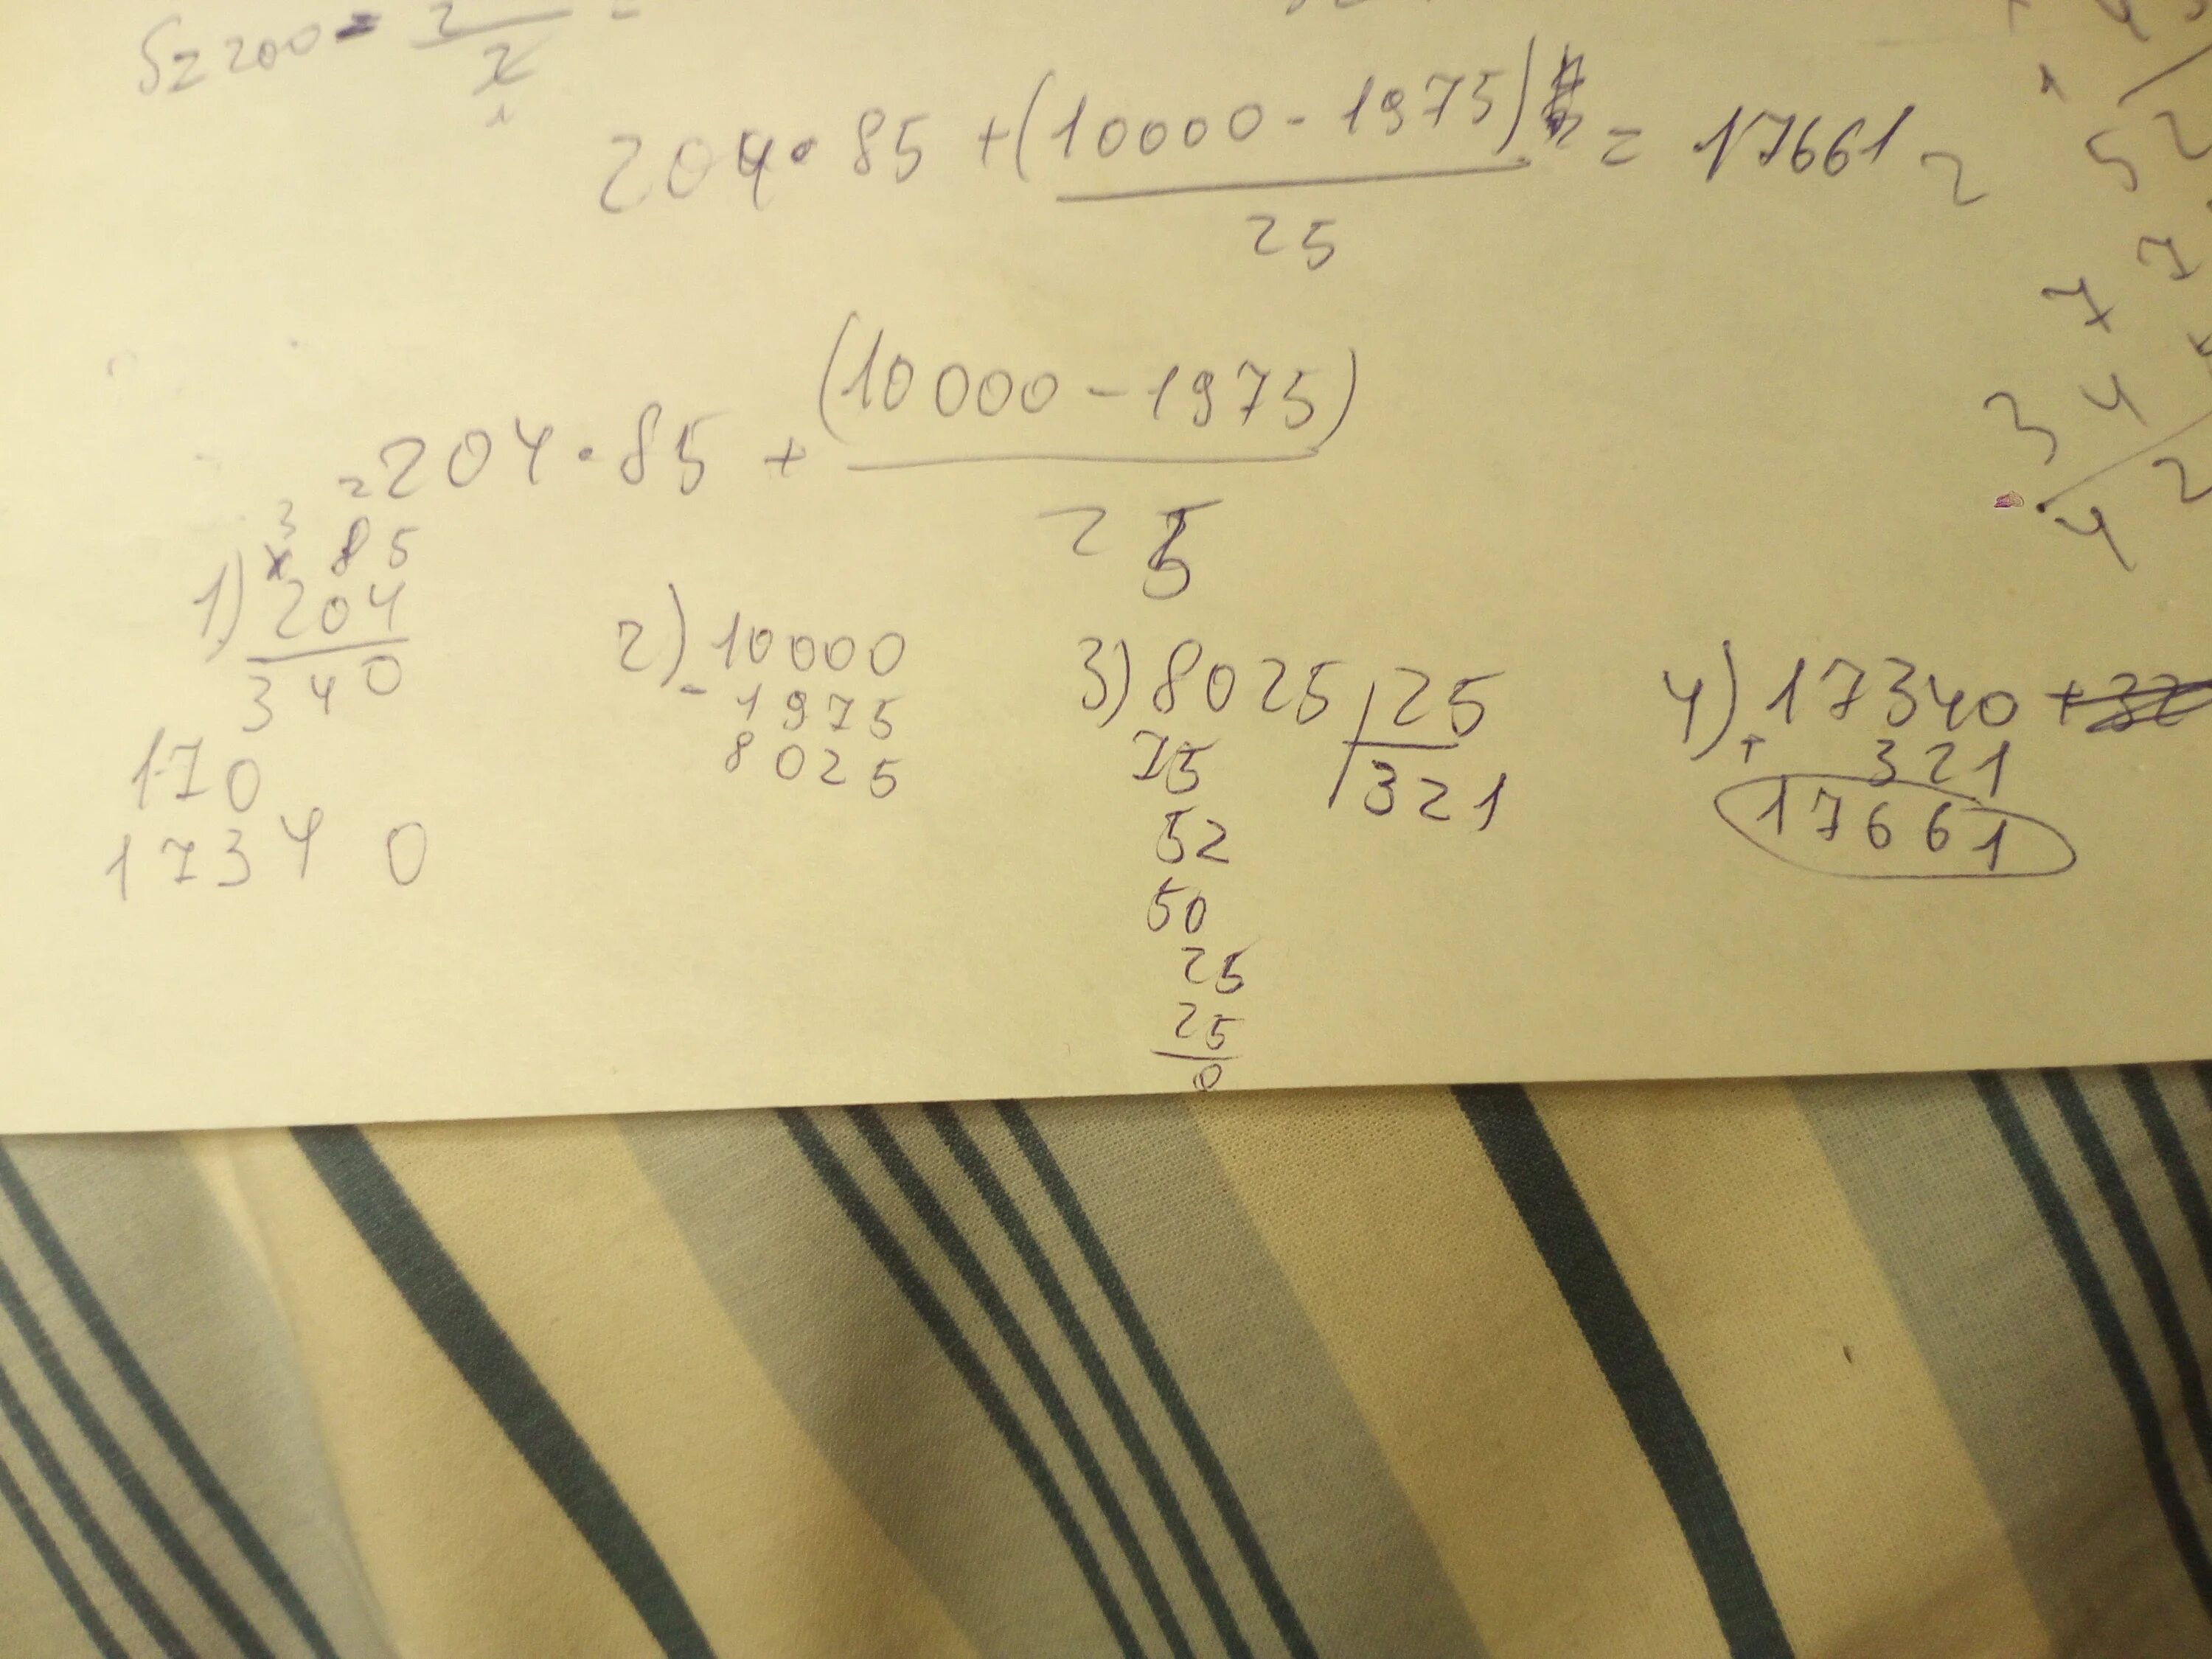 204 · 85 + (10000 - 1975) / 25 = 17661 =
= 204 · 85 + (10000 - 1975) / 25
1) 3
× 85
204
340
170
17340
2) 10000
- 1975
8025
3) 8025 | 25
75 | 321
52
50
25
25
0
4) 17340
+ 321
17661